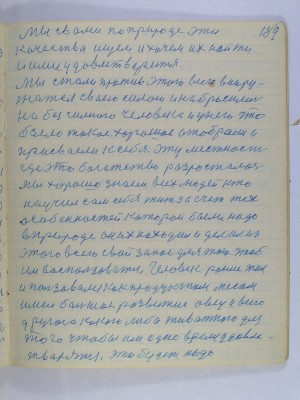 189
Мы с вами по природе эти
качества ищем и хочем их найти
и ими удовлетворятся.
Мы стали против этого всего воору-
жатся своею силою и набросились
на безсильного человека у него это
было такое хорошое отобрали и
присвоили к себя. Эту местность
где это богатство разросталось
Мы хорошо знаем всех людей кто
научил сам себя жить за счет тех
особенностей которои были надо
в природе они находили и делали из
этого всего свой запас для того чтоб
им воспользоватся. Человек раньше
и пользовался как продуктом мясом
имел большое розветие овец и всего
другого какого либо животного для
того чтобы им одно время удовле-
творятся, это будет надо